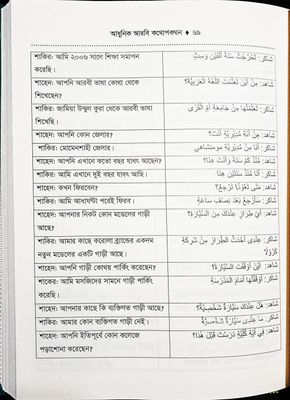 আধুনিক আরবি কথোপকথন ♦ ৬৯
শাকির: আমি ২০০৬ সালে শিক্ষা সমাপন
করেছি।
شاكر: تَخَرَّجْتُ سَنَةَ أَلْفَيْنِ وَسِتٍّ
শাহেদ: আপনি আরবী ভাষা কোথা থেকে
শিখেছেন?
شاهد: مِنْ أَيْنَ تَعَلَّمْتَ اللُّغَةَ الْعَرَبِيَّةَ؟
শাকির: জামিয়া উম্মুল কুরা থেকে আরবী ভাষা
শিখেছি।
شاكر: تَعَلَّمْتُهَا مِنْ جَامِعَةِ اُمِّ الْقُرَى
শাহেদ: আপনি কোন জেলার?
شاهد: أَنَا مِنْ أَيَّةِ مُدِيْرِيَّةٍ أَنْتَ؟
শাকির: মোমেনশাহী জেলা।
شاكر: أَنَا مِنْ مُدِيْرِيَّةِ مومنشاهي
শাহেদ: আপনি এখানে কতো বছর যাবৎ আছেন?
شاهد: مُنْذُ كَمْ سَنَةً وَأَنْتَ هُنَا؟
শাকির: আমি এখানে দুই বছর যাবৎ আছি।
شاكر: أَنَا مُنْذُ سَنَتَيْنِ هِنَا
শাহেদ: কখন ফিরবেন?
شاهد: مَتَى تَعُوْدُ/ تَرْجِعُ؟
শাকির: আমি আধাঘন্টা পরেই ফিরব।
شاكر: سَأَرْجِعُ بَعْدَ نِصْفِ سَاعَةٍ
শাহেদ: আপনার নিকট কোন মডেলের গাড়ী
আছে?
شاهد: أَيُّ طِرَازٍ عِنْدَكَ مِنَ السَّيَّارَةِ؟
শাকির: আমার কাছে করোলা ব্র্যান্ডের একদম
নতুন মডেলের একটি গাড়ী আছে।
شاكر: عِنْدِى أَحْدَثُ الطِّرَازِ مِنْ شَرِكَةِ
كَرُوْلَا
শাহেদ: আপনি গাড়ী কোথায় পার্কিং করেছেন?
شاهد: أَيْنَ أَوْقَفْتَ السَّيَّارَةَ؟
শাকির: আমি মসজিদের সামনে গাড়ী পার্কিং
করেছি।
شاكر: أَوْقَفْتُهَا أَمَامَ الْمَدْرَسَةِ
শাহেদ: আপনার কাছে কি ব্যক্তিগত গাড়ী আছে?
شاهد: هَلْ عِنْدَكَ سَيَّارَةٌ شَخْصِيَّةٌ؟
শাকির: আমার কোন ব্যক্তিগত গাড়ী নেই।
شاكر: مَا عِنْدِى سَيَّارَةٌ شَخْصِيَّةٌ
শাহেদ: আপনি ইতিপূর্বে কোন কলেজে
পড়াশোনা করেছেন?
شاهد: فِي أَيَّةِ كُلِّيَّةٍ دَرَسْتَ قَبْلَ هٰذَا؟